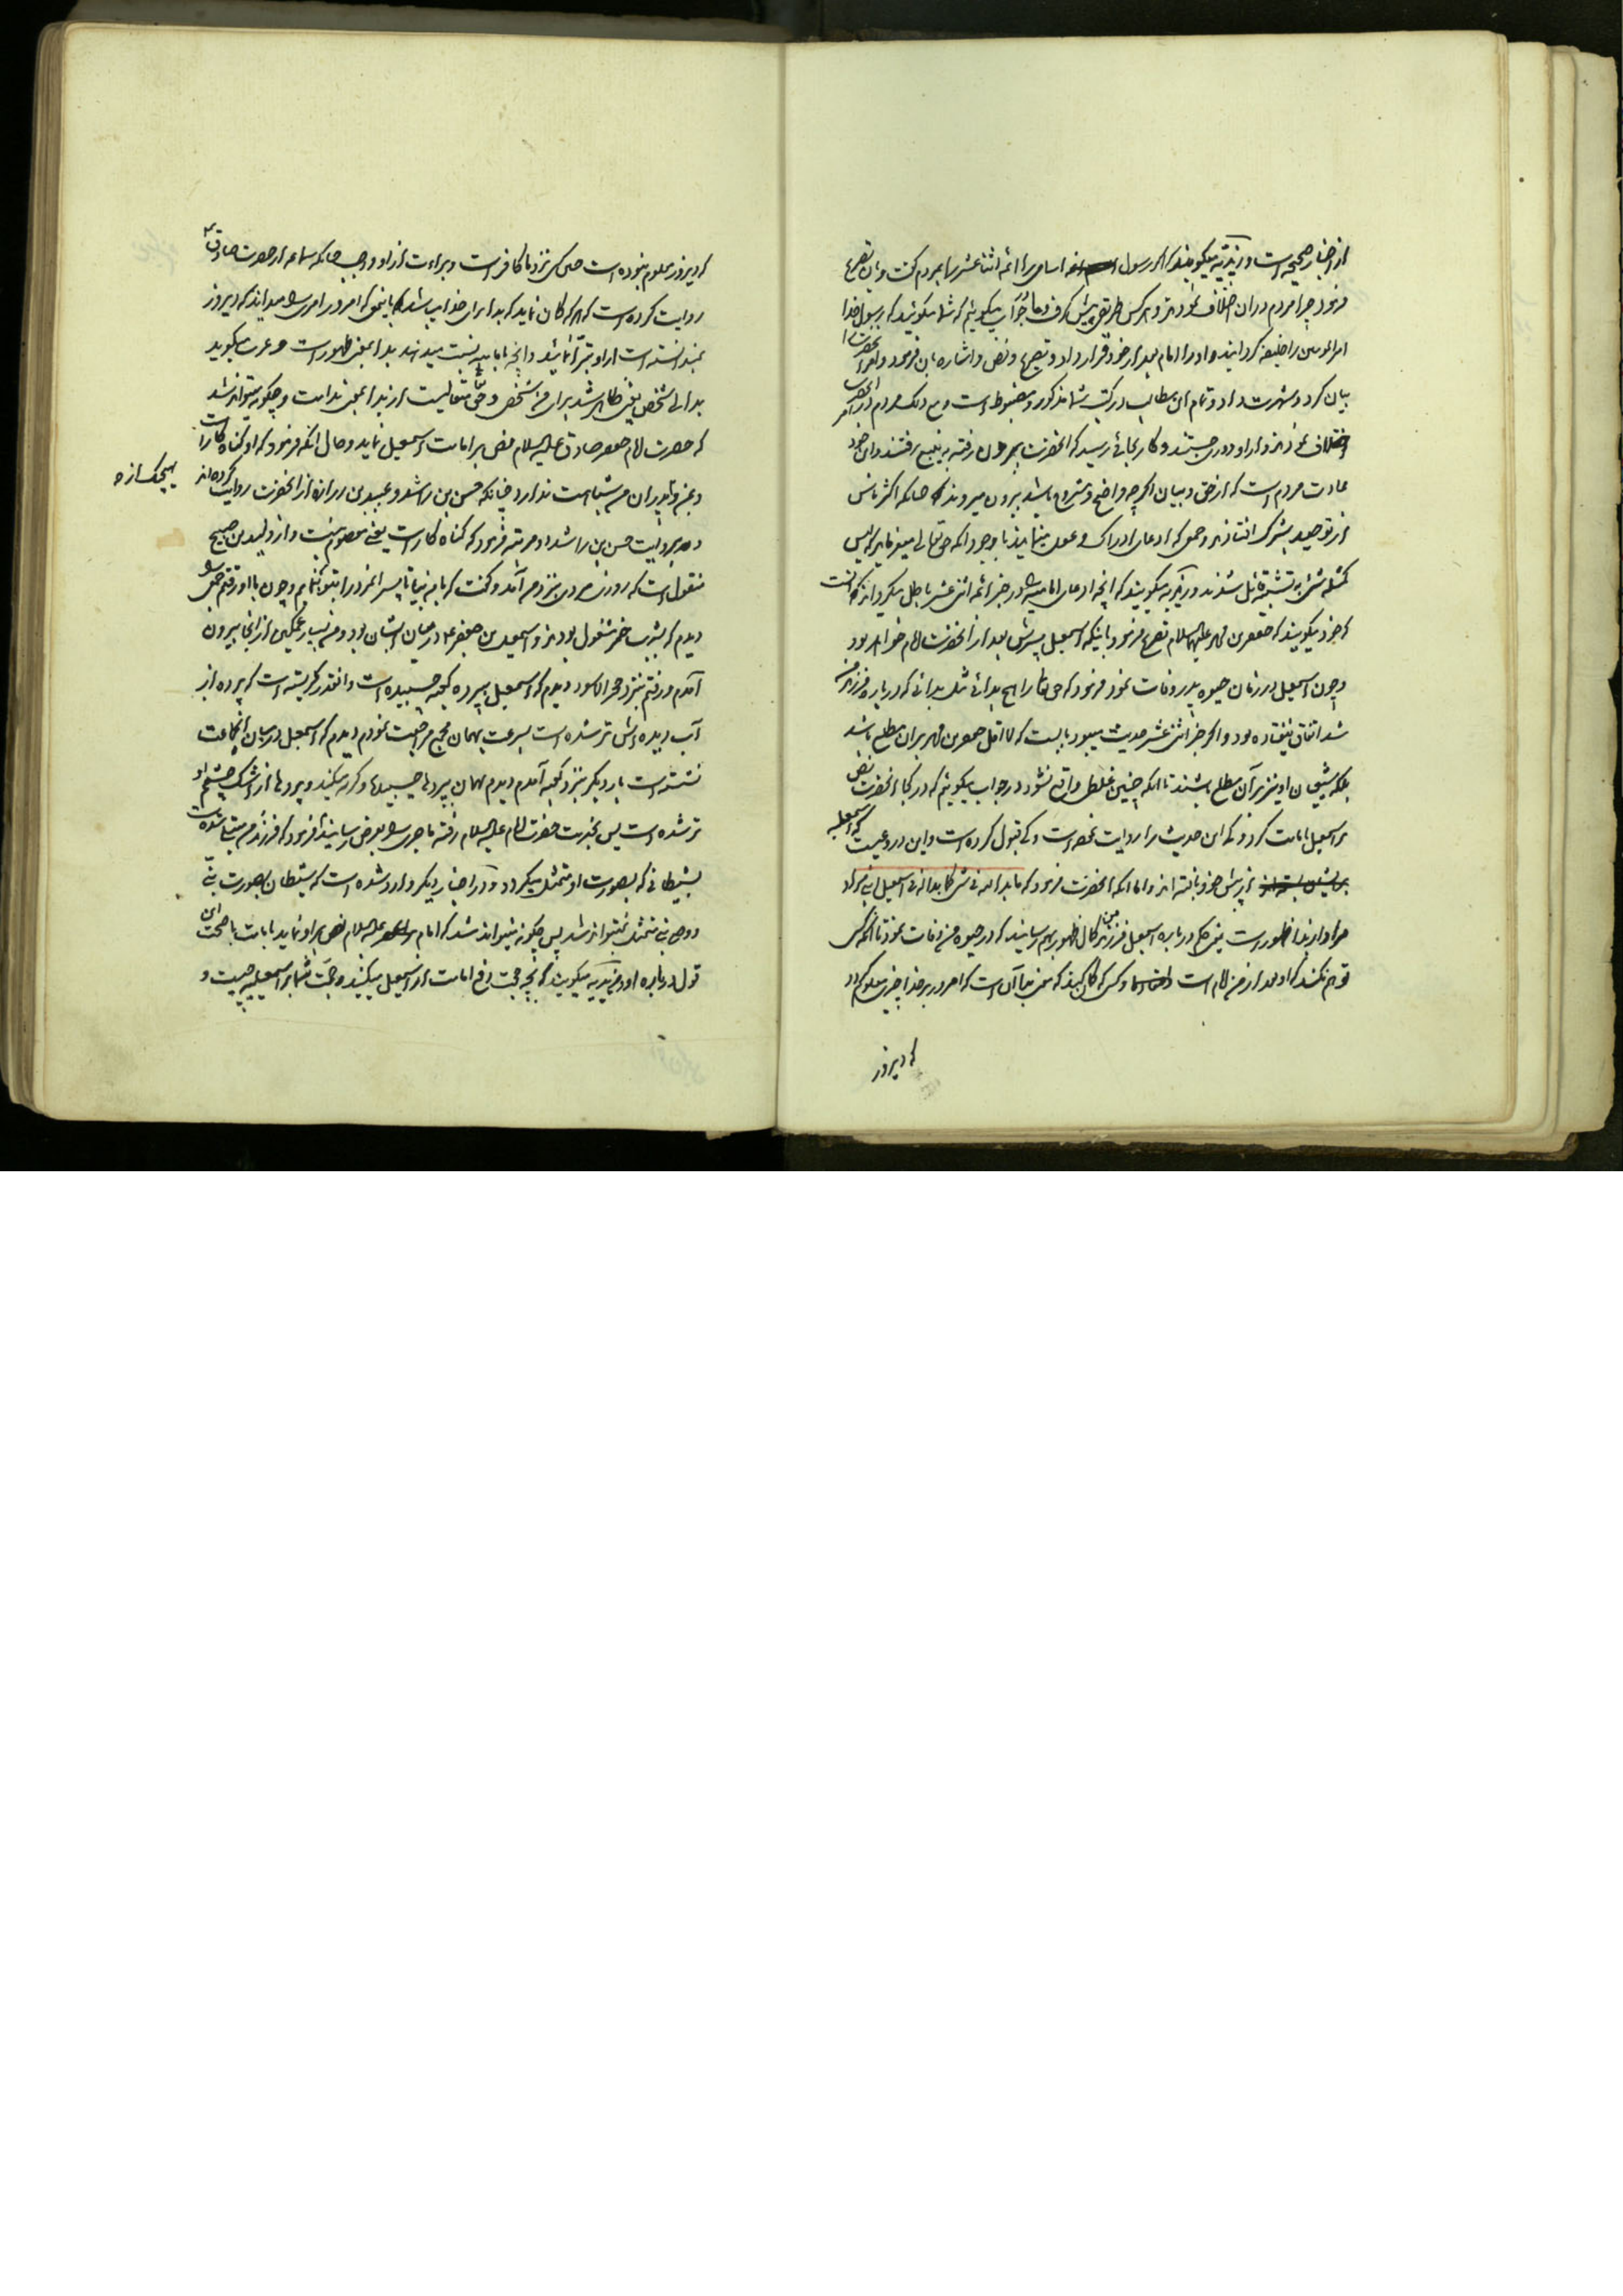 از اخبار صحیحه است و زیدیه میگویند که اگر رسول اسامی ائمه اثنا عشر را بمردم گفت و بآن تصریح
فرمود چرا مردم در آن اختلاف نمودند و هر کس طریقی پیش گرفت و ما جواب میگوئیم که شما میگوئید که رسول خدا
امیرالمومنین را خلیفه گردانید و او را امام بعد از خود قرار داد و تصریح و نص و اشاره بآن فرمود و آنحضرت را
بیان کرد و شهرت داد و تمام این مطالب در کتب شما مذکور و مضبوط است و مع ذلک مردم در آن امر
اختلاف نمودند و از او دوری جستند و کار بجائی رسید که آنحضرت بیرون رفته به ینبع رفتند و این خود
عادت مردم است که از حق و بیان اگرچه واضح و مشروح باشد بیرون میروند چنانکه اکثر ناس
از توحید بشرک افتادند و جمعی که ادعای ادراک و عقل مینمایند با وجود آنکه حق تعالی میفرماید که لیس
کمثله شیء به تشبیه قائل شدند و زیدیه میگویند که آنچه ادعای امامیه را در خبر ائمه اثنی عشر باطل میگرداند آنست
که خود میگویند که جعفر بن محمد علیهما السلام تصریح فرمود باینکه اسمعیل پسرش بعد از آنحضرت امام خواهد بود
و چون اسمعیل در زمان حیوة پدر وفات نمود فرمود که حق تعالی را هیچ بدائی مثل بدائی که درباره فرزندم
شد اتفاق نیفتاده بود و اگر خبر اثنی عشر صحیح میبود بایست که لا اقل جعفر بن محمد بر آن مطلع باشد
بلکه شیعیان او نیز بر آن مطلع باشند تا آنکه چنین غلطی واقع نشود در جواب میگوئیم که در کجا آنحضرت نص
بر اسمعیل بامامت کرد و که این حدیث را روایت نموده است و که قبول کرده است و این دروغیست که اسمعیلیه
از پیش خود بافته اند و اما آنکه آنحضرت فرمود که ما بدا لله فی شیء کما بدا له فی اسمعیل ابنی مراد
مراد از بدا ظهور است یعنی حکمی درباره اسمعیل فرزند من کمال ظهور بهم رسانید که در حیوة من وفات نمود تا آنکه کسی
توهم نکند که او بعد از من امام است و کسی که گمان کند که معنی بدا آن است که امروز بر خدا چیزی معلوم گردد
که دیروز
که دیروز معلوم نبوده است چنین کس نزد ما کافر است و براءت از او واجب چنانکه سماعه از حضرت صادق ع
روایت کرده است که هر که گمان نماید که بدا برای خدا میباشد باین نحو که امروز امری را میداند که دیروز
نمیدانسته است از او تبرّا نمائید و آنچه امامیه نسبت میدهند بدا بمعنی ظهور است و عرب میگوید
بدا لی شخص یعنی ظاهر شد برای من شخصی و حق تعالی متعالیست از بدا بمعنی ندامت و چگونه میتواند شد
که حضرت امام جعفر صادق علیه السلام نص بر امامت اسمعیل نماید و حال آنکه فرمود که او گناه کار است
و بمن و پدران من شباهت ندارد چنانکه حسن بن راشد و عبید بن زراره از آنحضرت روایت کرده اند
بهیچیک از ه
و بروایت حسن بن راشد دو مرتبه فرمود که گناه کار است یعنی معصوم نیست و از ولید بن صبیح
منقول است که روزی مردی نزد من آمد و گفت که با من بیا تا پسر آنمرد را بتو بنمایم و چون با او رفتم جمعی را
دیدم که بشرب خمر مشغول بودند و اسمعیل بن جعفر ع در میان ایشان بود و من بسیار غمگین از آنجا بیرون
آمدم و رفتم بنزد حجر الاسود دیدم که اسمعیل بپرده کعبه چسبیده است و آنقدر گریسته است که پرده از
آب دیده اش تر شده است بسرعت بهمان مجمع مراجعت نمودم دیدم که اسمعیل در میان آنجماعت
نشسته است بار دیگر بنزد کعبه آمدم دیدم بهمان پرده ها چسبیده و گریه میکند و پرده ها از اشک چشم او
تر شده است پس بخدمت حضرت امام علیه السلام رفته ماجری را بعرض رسانیدم فرمود که فرزندم مبتلا شده است
بشیطانی که بصورت او متمثل میگردد و در اخبار دیگر وارد شده است که شیطان بصورت نبی
و وصی نبی متمثل نمیتواند شد پس چگونه میتواند شد که امام علیه السلام نص بر او نماید بامامت با صحت این
قول درباره او و زیدیه میگویند که بچه حجت دفع امامت از اسمعیل میکنید و حجت شما بر اسمعیلیه چیست و